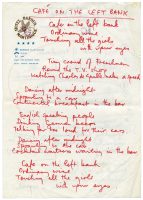 CAFÉ ON THE LEFT BANK
Cafe on the left bank
Ordinary wine
Touching all the girls
with your eyes
Tiny crowd of Frenchmen
Round the T.V. shop
Watching Charles de Gaulle make a speech
Dancing after midnight
Sprawling to a car
Continental breakfast in the bar
English speaking people
Drinking German beer
Talking far too loud for their ears
Dancing after midnight
Sprawling to the car
Continental breakfast in the bar
Cafe on the left bank
Ordinary wine
Touching all the girls
with your eyes